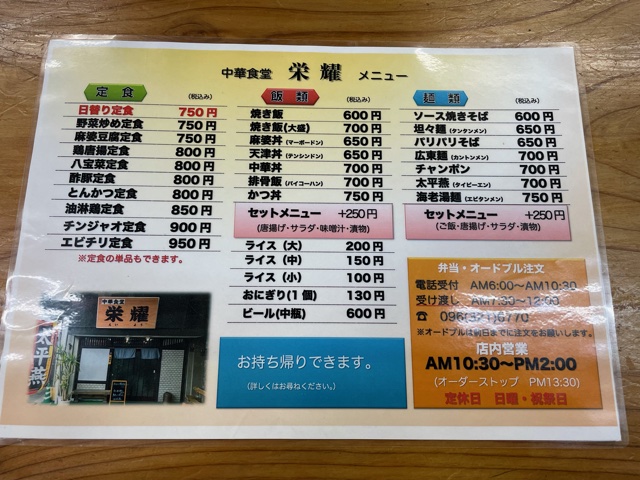 中華食堂 栄耀 メニュー
定食 (税込み)
日替り定食 750円
野菜炒め定食 750円
麻婆豆腐定食 750円
鶏唐揚定食 800円
八宝菜定食 800円
酢豚定食 800円
とんかつ定食 800円
油淋鶏定食 850円
チンジャオ定食 900円
エビチリ定食 950円
※定食の単品もできます。
中華食堂
栄耀
太平燕
飯類 (税込み)
焼き飯 600円
焼き飯(大盛) 700円
麻婆丼(マーボードン) 700円
天津丼(テンシンドン) 700円
中華丼 700円
排骨飯(パイコーハン) 700円
かつ丼 750円
セットメニュー +250円
(唐揚げ・サラダ・味噌汁・漬物)
ライス(大) 200円
ライス(中) 150円
ライス(小) 100円
おにぎり(1個) 130円
ビール(中瓶) 600円
お持ち帰りできます。
(詳しくはお尋ねください。)
麺類 (税込み)
ソース焼きそば 600円
坦々麺(タンタンメン) 650円
パリパリそば 650円
広東麺(カントンメン) 700円
チャンポン 700円
太平燕(タイピーエン) 700円
海老湯麺(エビタンメン) 750円
セットメニュー +250円
(ご飯・唐揚げ・サラダ・漬物)
弁当・オードブル注文
電話受付 AM6:00〜AM10:30
受け渡し AM7:30〜12:00
☎ 096(321)0770
※オードブルは前日までに注文をお願いします。
店内営業
AM10:30〜PM2:00
(オーダーストップ PM13:30)
定休日 日曜・祝祭日